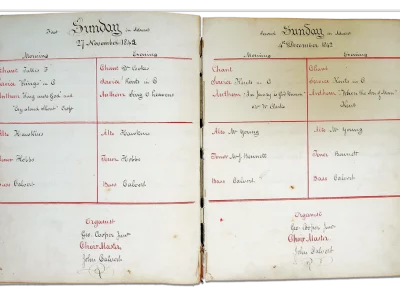 First Sunday in Advent
27 November 1842
Morning Evening
Chant Tallis D Chant Dr Cooke
Service King's in C Service Kent's in C
Anthem Sing unto God and Anthem Sing O heavens
"Cry aloud & Shout" Croft Kent
Alto Hawkins Alto Hawkins
Tenor Hobbs Tenor Hobbs
Bass Calvert Bass Calvert
Organist
Geo. Cooper Junr
Choir Master
John Calvert
Second Sunday in Advent
4th December 1842
Morning Evening
Chant Chant
Service Kent's in C Service Kent's in C
Anthem "In Jewry is God known" Anthem "When the Son of Man"
Kent
Alto Mr Young Alto Mr Young
Tenor Mr J Bennett Tenor Bennett
Bass Calvert Bass Calvert
Organist
Geo. Cooper Junr
Choir Master
John Calvert